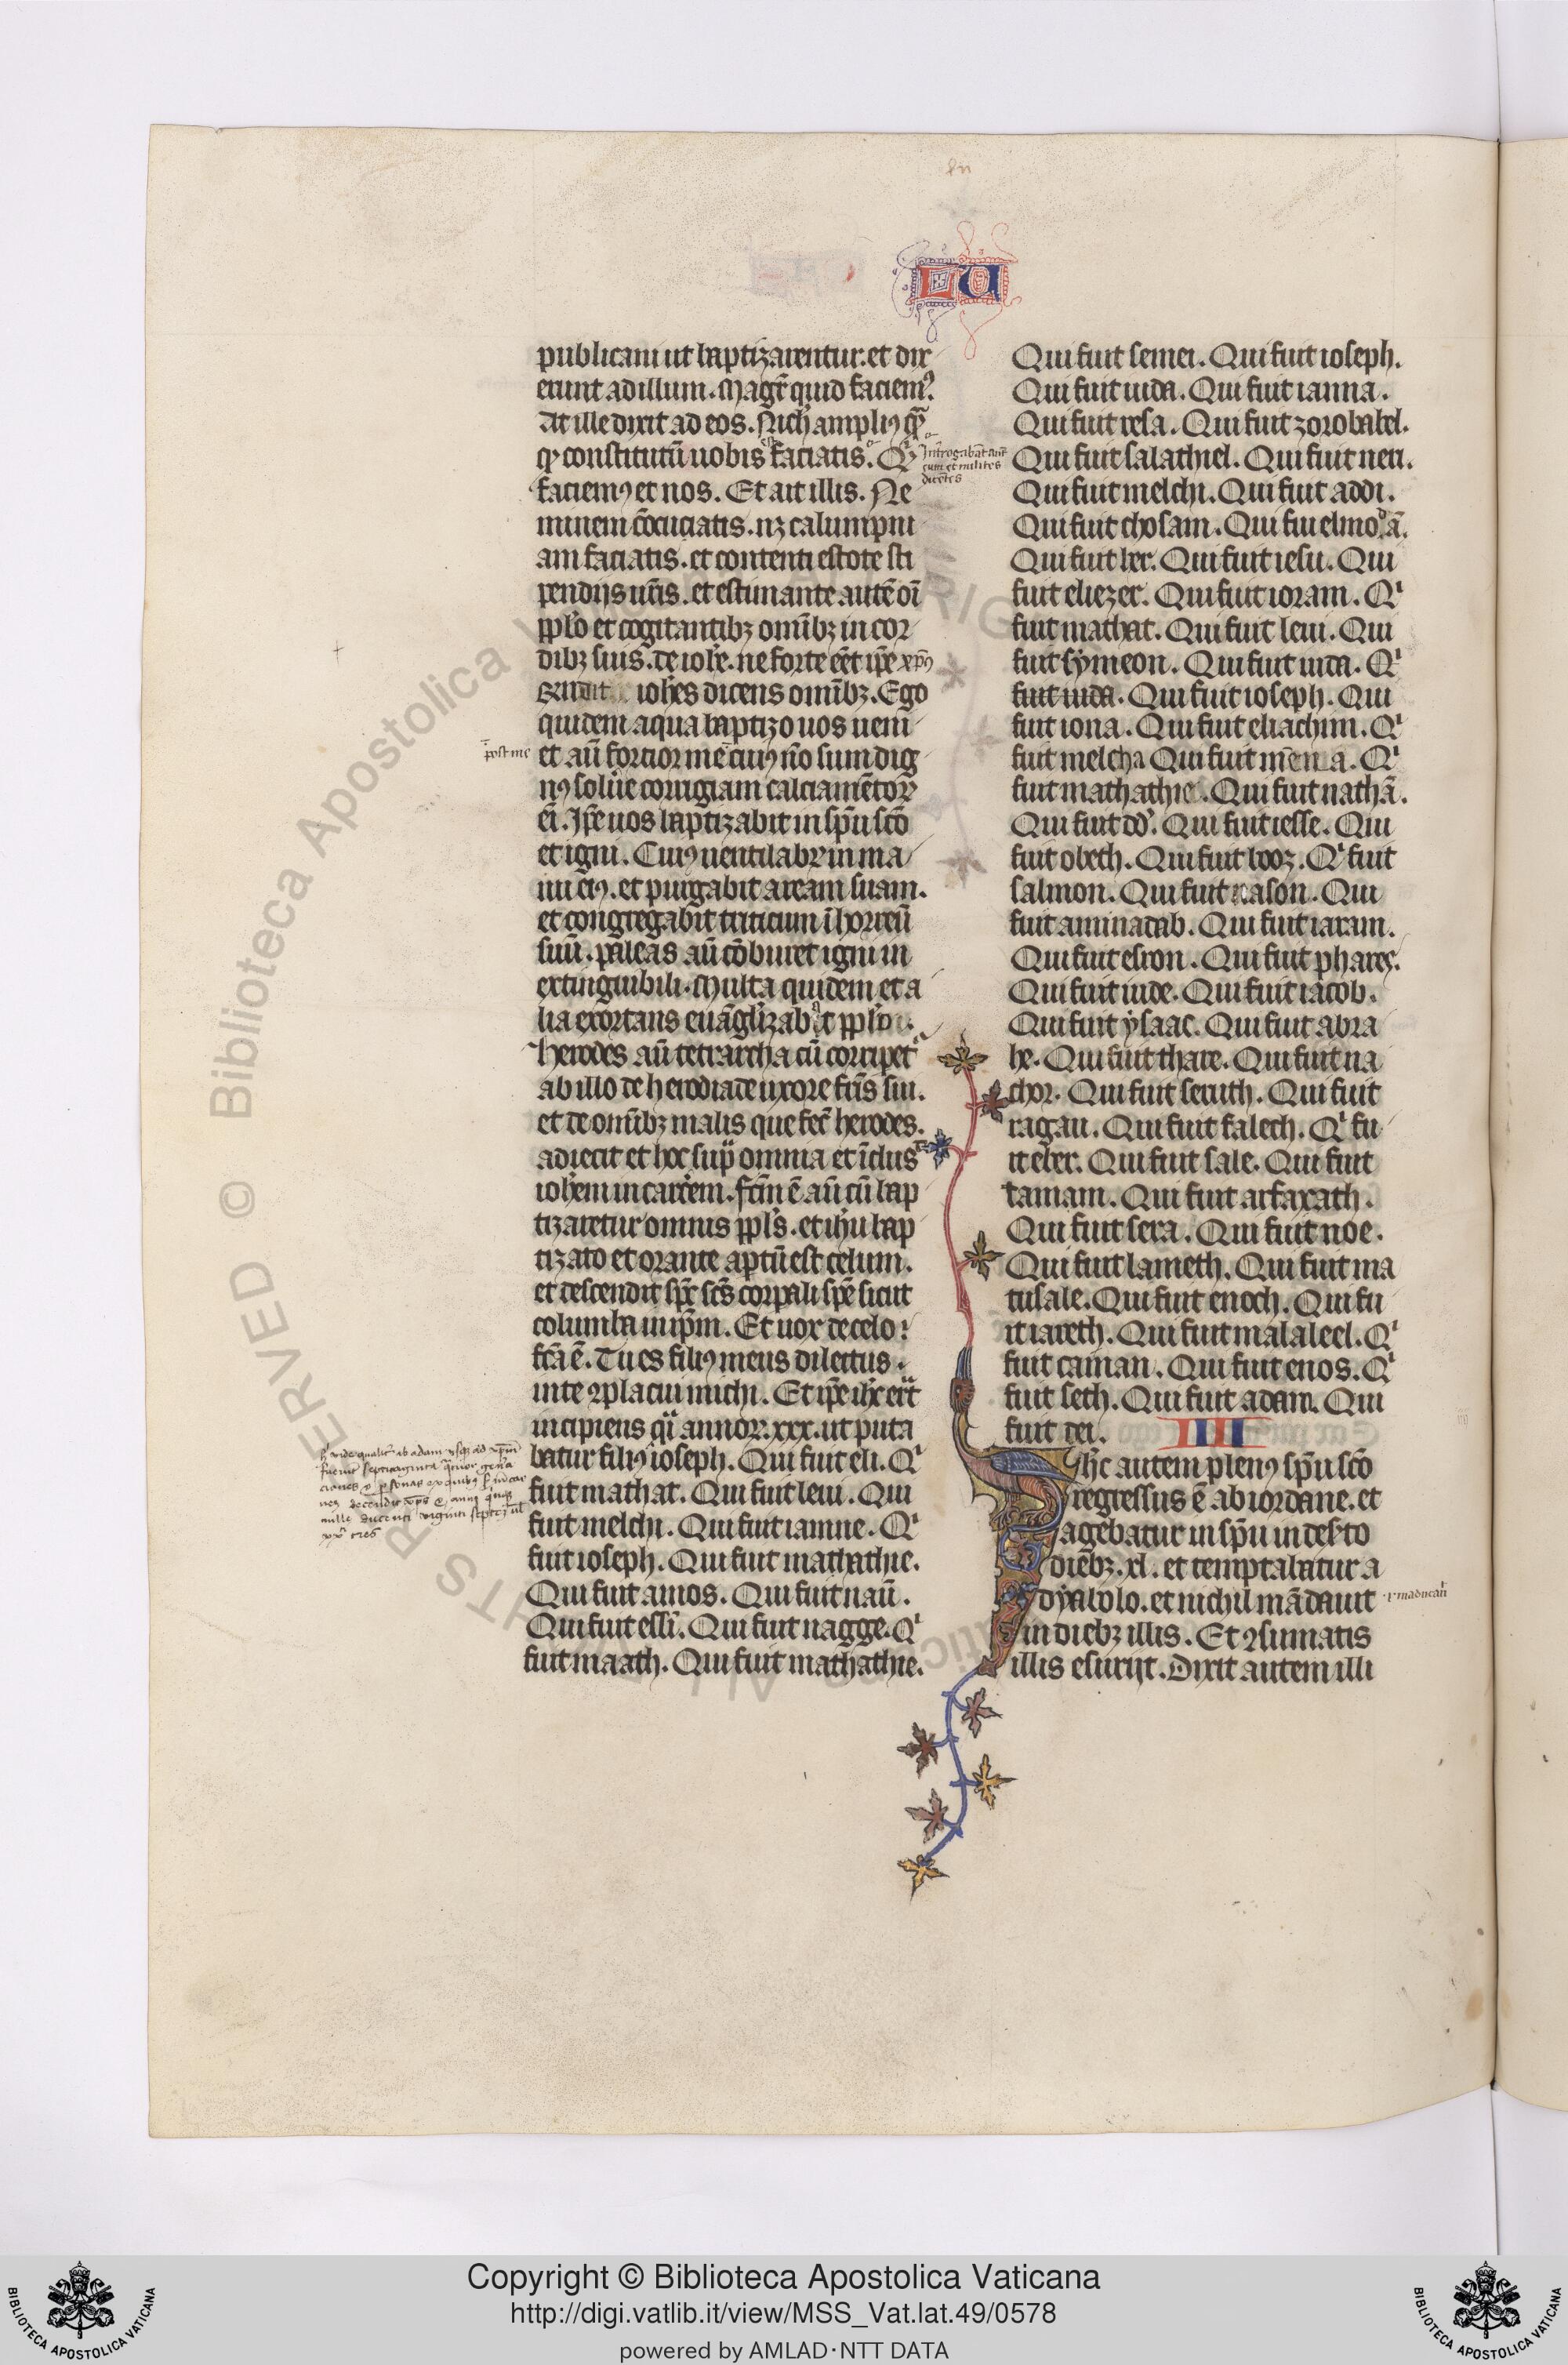 LU
publicani ut baptizarentur. et dix
erunt ad illum. Magr̄ quid faciemꝰ.
At ille dixit ad eos. Nich̄ ampliꝰ qͣ
ꝙ constitutū uobis faciatis. Qͥ
Int̄rogabāt aut̄
eum et milites
dicētes
faciemꝰ et nos. Et ait illis. Ne
minem ɔ̄cuciatis. nꝫ calumpni
am faciatis. et contenti estote sti
pendijs ur̄is. et estimante autē oī
ppl̄o et cogitantibꝫ omībꝫ in cor
dibꝫ suis. de ioh̄e. ne forte eēt ip̄e xp̄ꝰ
iohēs dicens omībꝫ. Ego
quidem aqua baptizo uos ueni
post me
et aū fortior me cuiꝰ nō sum dig
nꝰ soluē corrigiam calciamētoꝝ
eī. Ip̄e uos baptizabit in sp̄u scō
et igni. Cuiꝰ uentilabꝝ in ma
nu eiꝰ. et purgabit aream suam.
et congregabit triticum ī horreū
suū. paleas aū cōburet igni in
extinguibili. Multa quidem et a
lia exortans euāgl̄izabat ppl̄o
herodes aū tetrarcha cū corripet̄
ab illo de herodiade uxore frīs sui.
et de omībꝫ malis que fec̄ herodes.
adiecit et hoc sup̄ omnia et īclusͭ
ioh̄em in carcēm. fc̄m ē aū cū bap
tizaretur omnis ppl̄s. et ih̄u bap
tizato et orante aptū est celum.
et descendit sp̄c sc̄s corpali sp̄e sicut
columba in ip̄m. Et uox de celo
fc̄a ē. Tu es filiꝰ meus dilectus.
in te ꝯplacui michi. Et ip̄e ih̄c erͣt
incipiens qͣ annoꝝ. xxx. ut puta
batur filiꝰ ioseph. Qui fuit eli. Qͥ
fuit mathat. Qui fuit leui. Qui
fuit melchi. Qui fuit iamne. Qͥ
fuit ioseph. Qui fuit mathathie.
Qui fuit amos. Qui fuit naū.
Qui fuit esli. Qui fuit nagge. Qͥ
fuit maath. Qui fuit mathathie.
Qui fuit semei. Qui fuit ioseph.
Qui fuit iuda. Qui fuit ianna.
Qui fuit resa. Qui fuit zorobabel.
Qui fuit salathiel. Qui fuit neri.
Qui fuit melchi. Qui fuit addi.
Qui fuit chosam. Qui fui elmodā.
Qui fuit her. Qui fuit iesu. Qui
fuit eliezer. Qui fuit ioram. Qͥ
fuit mathat. Qui fuit leui. Qui
fuit symeon. Qui fuit iuda. Qͥ
fuit iuda. Qui fuit ioseph. Qui
fuit iona. Qui fuit eliachim. Qͥ
fuit melcha Qui fuit menna. Qͥ
fuit mathathie. Qui fuit nathā.
Qui fuit dd̄. Qui fuit iesse. Qui
fuit obeth. Qui fuit booz. Qͥ fuit
salmon. Qui fuit nason. Qui
fuit aminadab. Qui fuit iaram.
Qui fuit esron. Qui fuit phares.
Qui fuit iude. Qui fuit iacob.
Qui fuit ysaac. Qui fuit abra
he. Qui fuit thare. Qui fuit na
chor. Qui fuit seruth. Qui fuit
ragau. Qui fuit falech. Qͥ fu
it eber. Qui fuit sale. Qui fuit
tamam. Qui fuit arfaxath.
Qui fuit sera. Qui fuit noe.
Qui fuit lameth. Qui fuit ma
tusale. Qui fuit enoch. Qui fu
it iareth. Qui fuit malaleel. Qͥ
fuit cainan. Qui fuit enos. Qͥ
fuit seth. Qui fuit adam. Qui
fuit dei. IIII
Ih̄c autem plenꝰ sp̄u scō
regressus ē ab iordane. et
agebatur in sp̄u in deserto
diebꝫ. xl. et temptabatur a
dyabolo. et nichil māducauit
in diebꝫ illis. Et ꝯsumatis
illis esurijt. Dixit autem illi
© Biblioteca Apostolica Vaticana
ALL RIGHTS RESERVED
Copyright © Biblioteca Apostolica Vaticana
http://digi.vatlib.it/view/MSS_Vat.lat.49/0578
powered by AMLAD·NTT DATA
BIBLIOTECA APOSTOLICA VATICANA
BIBLIOTECA APOSTOLICA VATICANA